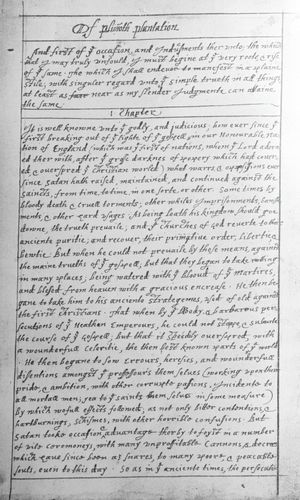 Of plimoth plantation
And first of yᵉ occasion, and Indusments ther unto; the which
that I may truly unfould, I must begine at yᵉ very roote & rise
of yᵉ same. The which I shall endevor to manefest in a plaine
stile; with singuler regard unto yᵉ simple trueth in all things,
at least as far near as my slender Judgmente can attaine
the same.
1 Chapter
It is well knowne unto yᵉ godly, and judicious; how ever since yᵉ
first breaking out of yᵉ lighte of yᵉ gospell, in our Honourable na-
tion of England (which was yᵉ first of nations, whom yᵉ Lord adorn-
ed ther with, after yᵗ grosse darknes of popery which had cover-
ed, & overspred yᵉ christian world) what warrs, & oppositions ever
since satan hath raised, maintained, and continued against the
saincts, from time, to time, in one sorte, or other. Some times by
bloody death & cruell torments; other whiles Imprisonments, banish-
ments, & other hard usages. As being loath his kingdom should goe
downe, the trueth prevaile; and yᵉ Churches of god reverte to their
anciente puritie; and recover, their primative order, libertie, &
bewtie. But when he could not prevaile by these means, against
the maine trueths of yᵉ gospell, but that they began to take rooting
in many places; being watered with yᵉ bloud of yᵉ martires,
and blessed from heaven with a gracious encrease. He then be-
gane to take him to his anciente strategemes, used of old against
the first Christians. That when by yᵉ bloody, & barbarous per-
secutions of yᵉ Heathen Emperours, he could not stoppe, & subverte
the course of yᵉ gospell; but that it speedily overspred, with
a wounderfull celeritie, the then best known parts of yᵉ world.
He then begane to sow errours, heresies, and wounderfull
disentions amongst yᵉ professours them selves (working upon their
pride, & ambition, with other corrupte passions, Incidente to
all mortall men; yea to yᵉ saints them selves in some measure)
by which wofull effects followed; as not only bitter contentions, &
hartburnings, schismes, with other horrible confusions. But
satan tooke occasion & advantage therby to foyst in a number
of vile ceremoneys, with many unprofitable Cannons, & decrees
which have since been as snares, to many poore, & peaceable
souls, even to this day. So as in yᵉ anciente times, the persecutio